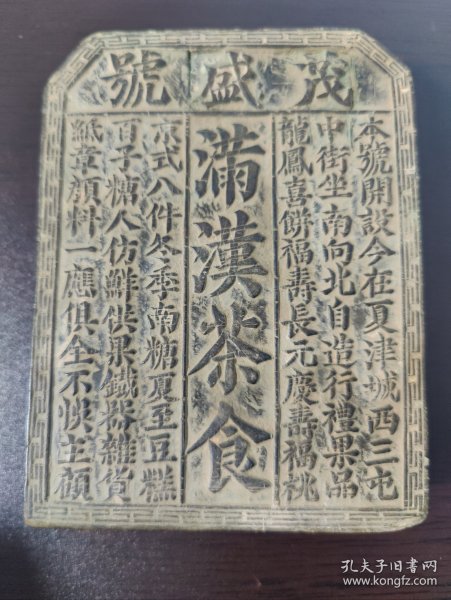 茂盛號
本號開設今在夏津城西三屯
中街坐南向北自造行禮果品
龍鳳喜餅福壽長元慶壽福桃
滿漢茶食
京式八件冬季南糖夏至豆糕
百子糖人仿鮮供果鐵器雜貨
紙章顏料一應俱全不悮主顧
孔夫子旧书网
www.kongfz.com